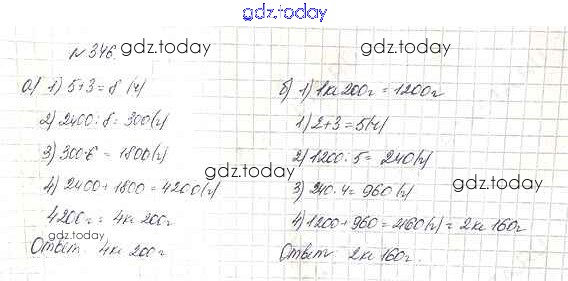 gdz.today
№ 346.
gdz.today
gdz.today
а) 1) 5+3=8 (ч)
2) 2400:8=300(г)
3) 300·6=1800(г)
4) 2400+1800=4200(г)
4200г=4кг 200г
Ответ: 4кг 200г
gdz.today
gdz.today
gdz.today
б) 1) 1кг200г=1200г
1) 2+3=5(ч)
2) 1200:5=240(г)
3) 240·4=960(г)
4) 1200+960=2160(г)=2кг 160г
Ответ: 2кг 160г.